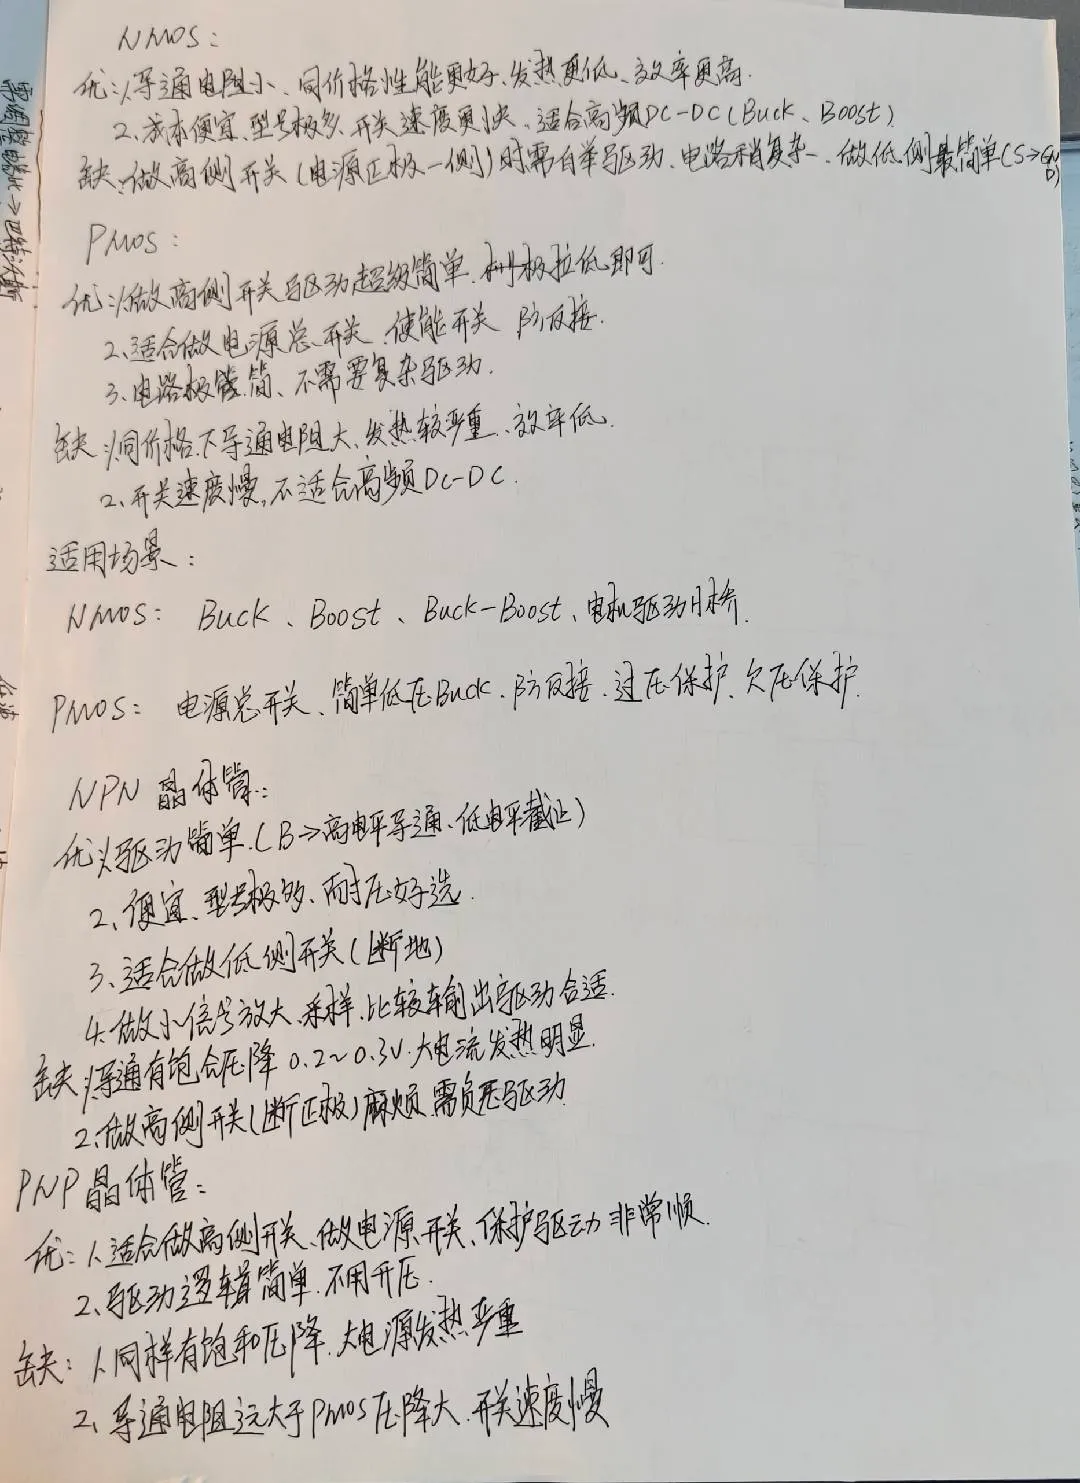 NMOS:
优:1、导通电阻小、同价格性能更好、发热更低、效率更高.
2、成本便宜、型号极多、开关速度更快、适合高频DC-DC(Buck、Boost)
缺:做高侧开关(电源正极一侧)时需自举驱动、电路稍复杂、做低侧最简单(S→GND)
PMOS:
优:1、做高侧开关驱动超级简单、栅极拉低即可.
2、适合做电源总开关、使能开关、防反接.
3、电路极简、不需要复杂驱动.
缺:1、同价格下导通电阻大、发热较严重、效率低.
2、开关速度慢,不适合高频DC-DC.
适用场景:
NMOS: Buck、Boost、Buck-Boost、电机驱动H桥.
PMOS: 电源总开关、简单低压Buck、防反接、过压保护、欠压保护.
NPN晶体管:
优:1、驱动简单.(B→高电平导通、低电平截止)
2、便宜、型号极多、耐压好选.
3、适合做低侧开关(断地)
4、做小信号放大、采样、比较输出驱动合适.
缺:1、导通有饱合压降0.2~0.3V.大电流发热明显.
2、做高侧开关(断正极)麻烦、需负压驱动.
PNP晶体管:
优:1、适合做高侧开关、做电源开关、保护驱动非常顺.
2、驱动逻辑简单、不用升压.
缺:1、同样有饱和压降、大电源发热严重
2、导通电阻远大于PMOS压降大、开关速度慢